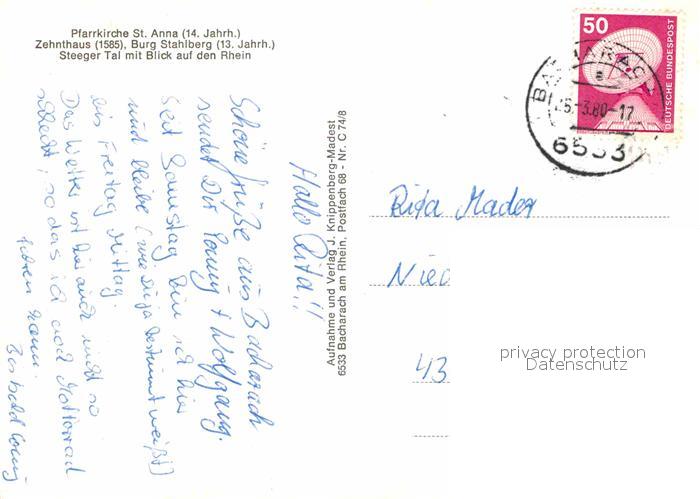 Pfarrkirche St. Anna (14. Jahrh.)
Zehnthaus (1585), Burg Stahlberg (13. Jahrh.)
Steeger Tal mit Blick auf den Rhein
Hallo Rita!!
Schöne Grüße aus Bacharach
sendet Dir Conny + Wolfgang.
Seit Samstag bin ich hier
und bleibe (wie Du ja bestimmt weißt)
bis Freitag Mittag.
Das Wetter ist hier auch nicht so
schlecht, so das ich auch Mottorrad
fahren kann.
Bis bald Conny
Aufnahme und Verlag J. Knippenberg-Madest
6533 Bacharach am Rhein, Postfach 68 - Nr. C 74/8
50
DEUTSCHE BUNDESPOST
BACHARACH
-3.80-17
6533
Rita Mader
Nied
43
privacy protection
Datenschutz